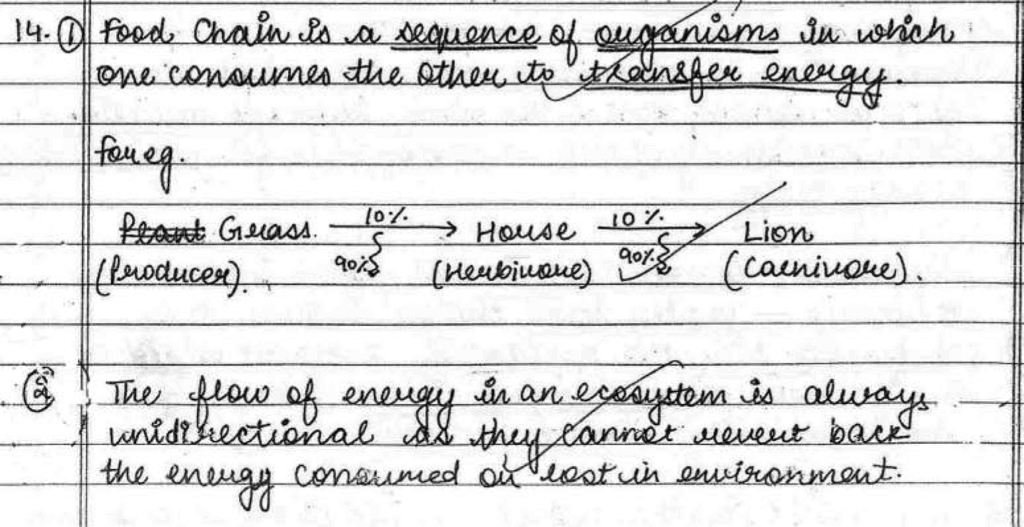 14. ① Food Chain is a sequence of organisms in which
one consumes the other to transfer energy
for eg.
Plant Grass 10% 90% → Horse 10% 90% → Lion
(Producer) (Herbivore) (Carnivore)
② The flow of energy in an ecosystem is always
unidirectional as they cannot revert back
the energy consumed or lost in environment.